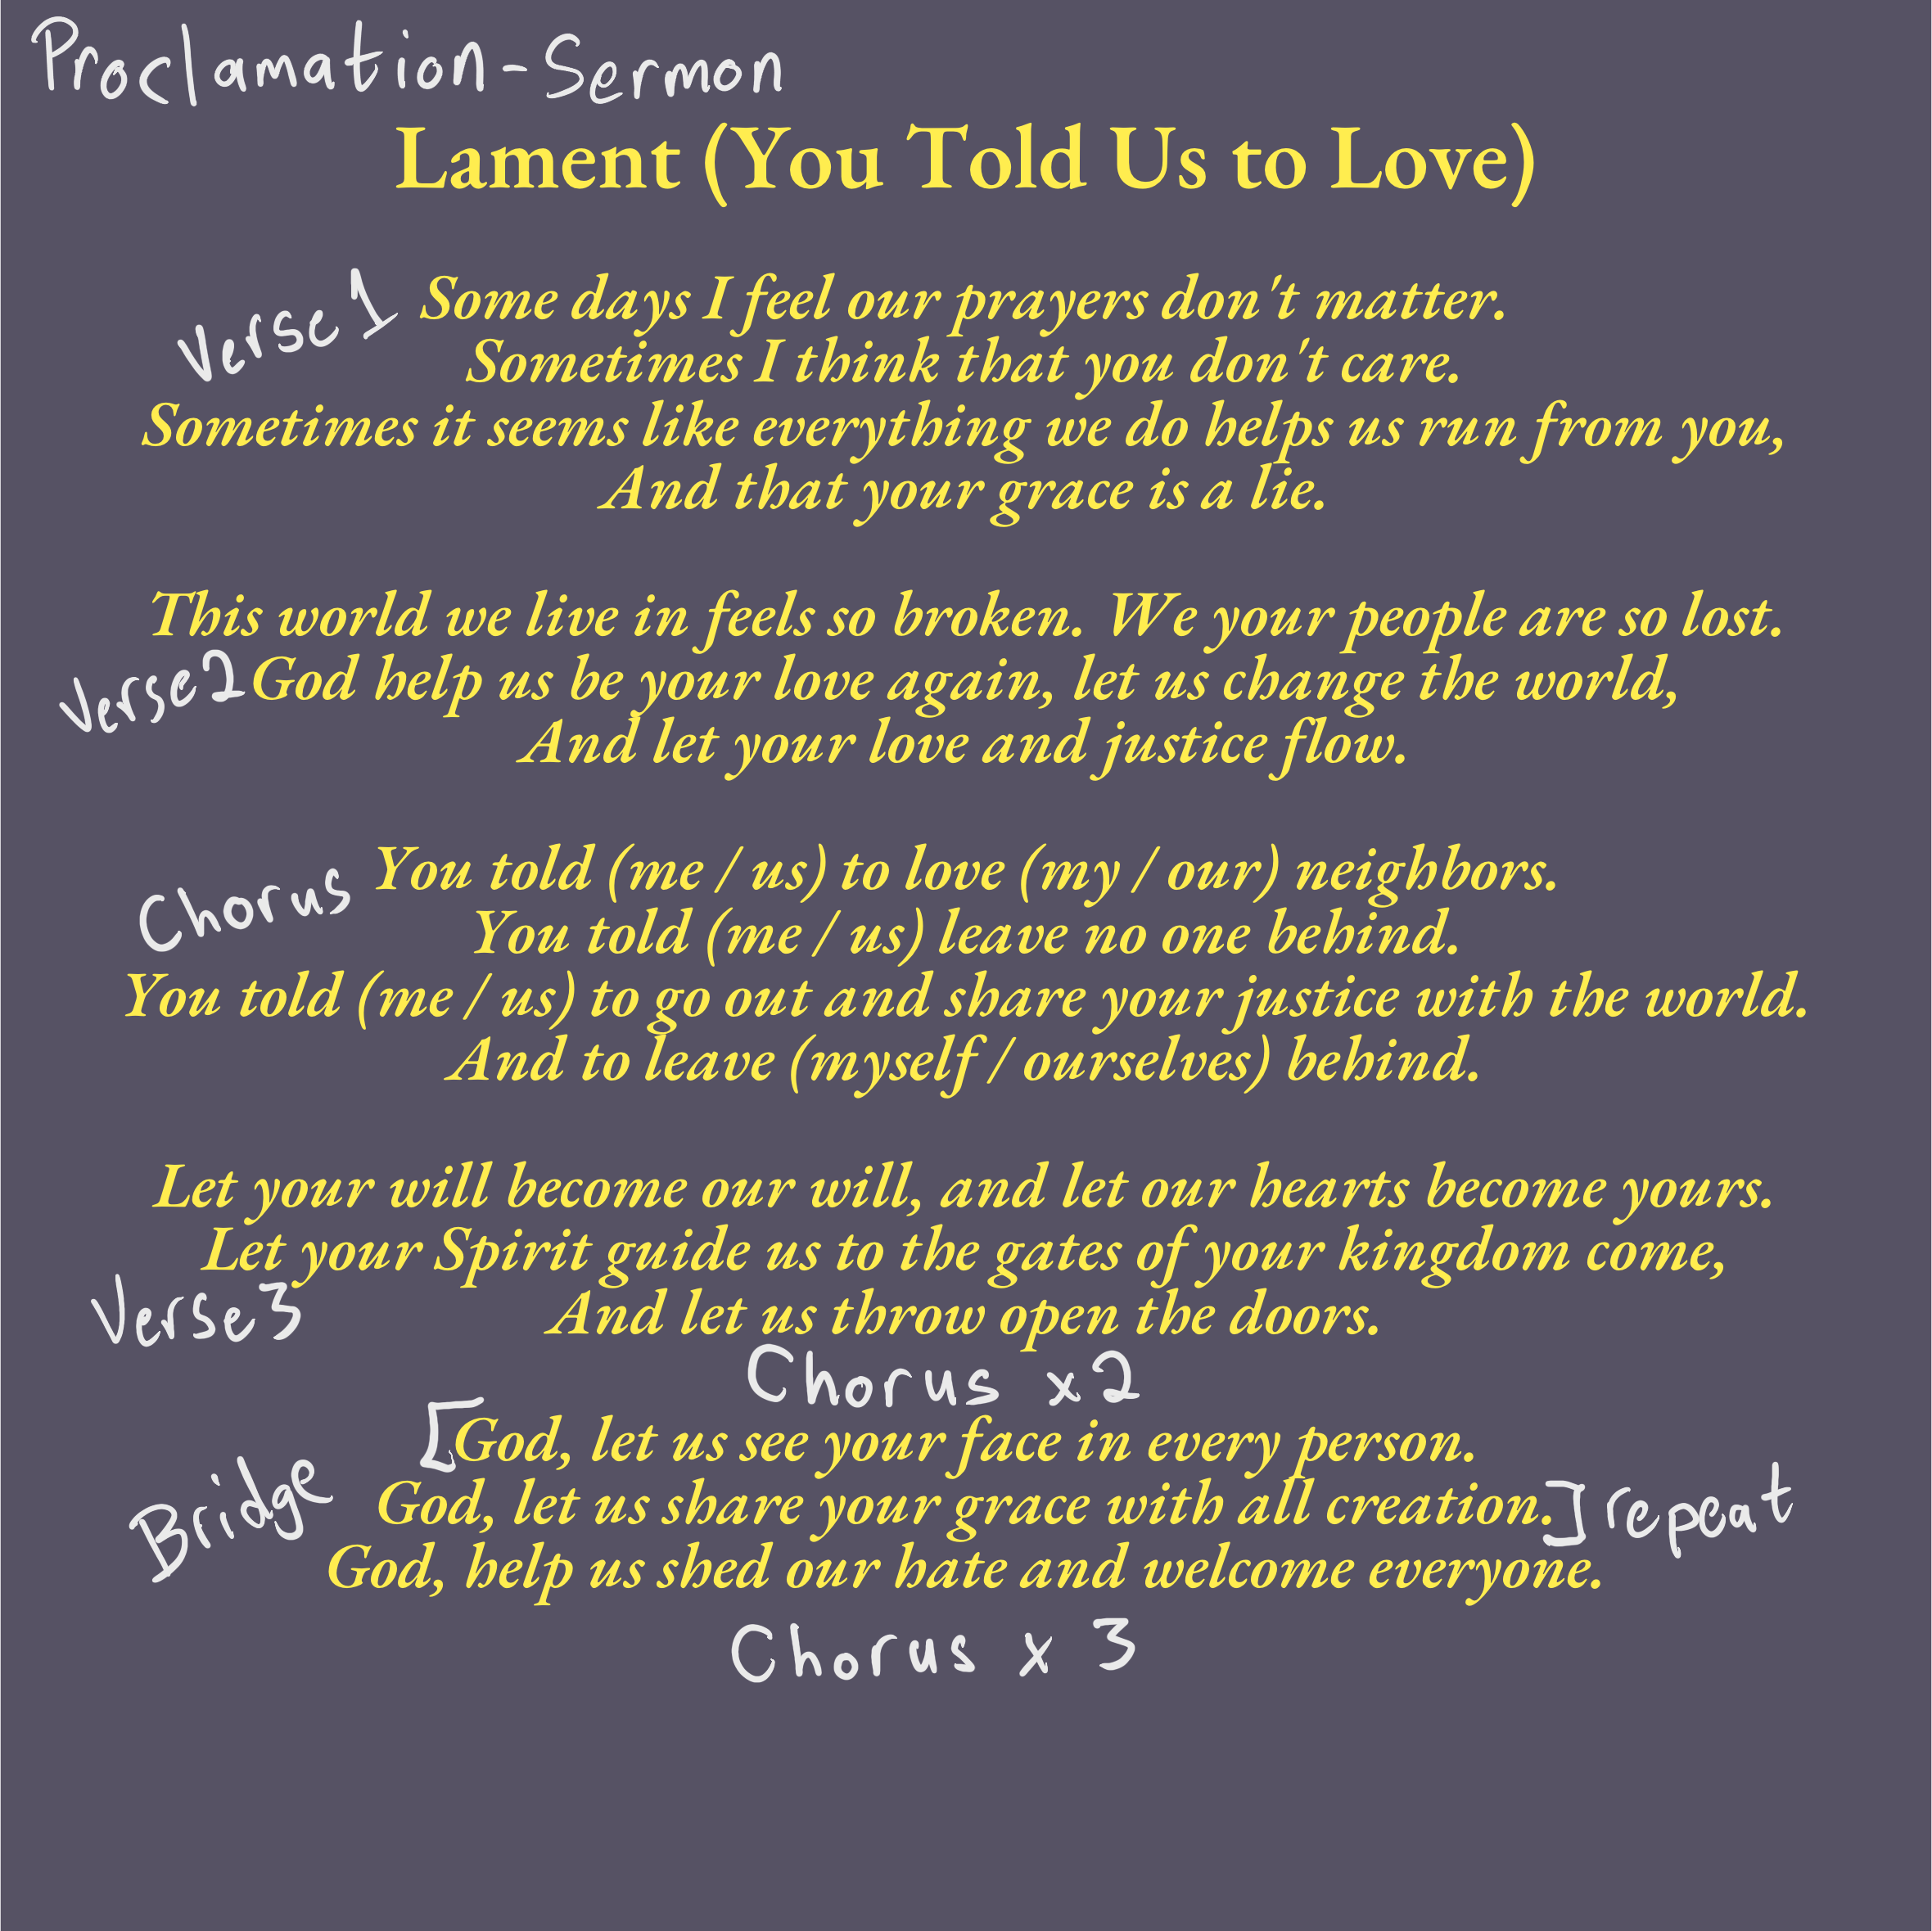 Proclamation-Sermon
Lament (You Told Us to Love)
Verse 1 Some days I feel our prayers don't matter.
Sometimes I think that you don't care.
Sometimes it seems like everything we do helps us run from you,
And that your grace is a lie.
This world we live in feels so broken. We your people are so lost.
Verse 2 God help us be your love again, let us change the world,
And let your love and justice flow.
Chorus You told (me / us) to love (my / our) neighbors.
You told (me / us) leave no one behind.
You told (me / us) to go out and share your justice with the world.
And to leave (myself / ourselves) behind.
Let your will become our will, and let our hearts become yours.
Let your Spirit guide us to the gates of your kingdom come,
Verse 3 And let us throw open the doors.
Chorus x2
[God, let us see your face in every person.
Bridge God, let us share your grace with all creation.] repeat
God, help us shed our hate and welcome everyone.
Chorus x 3